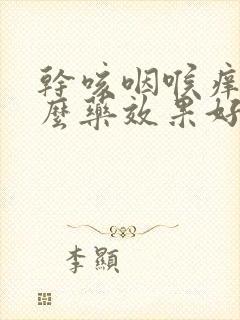 幹咳咽喉痒
麼藥效果好
李顯